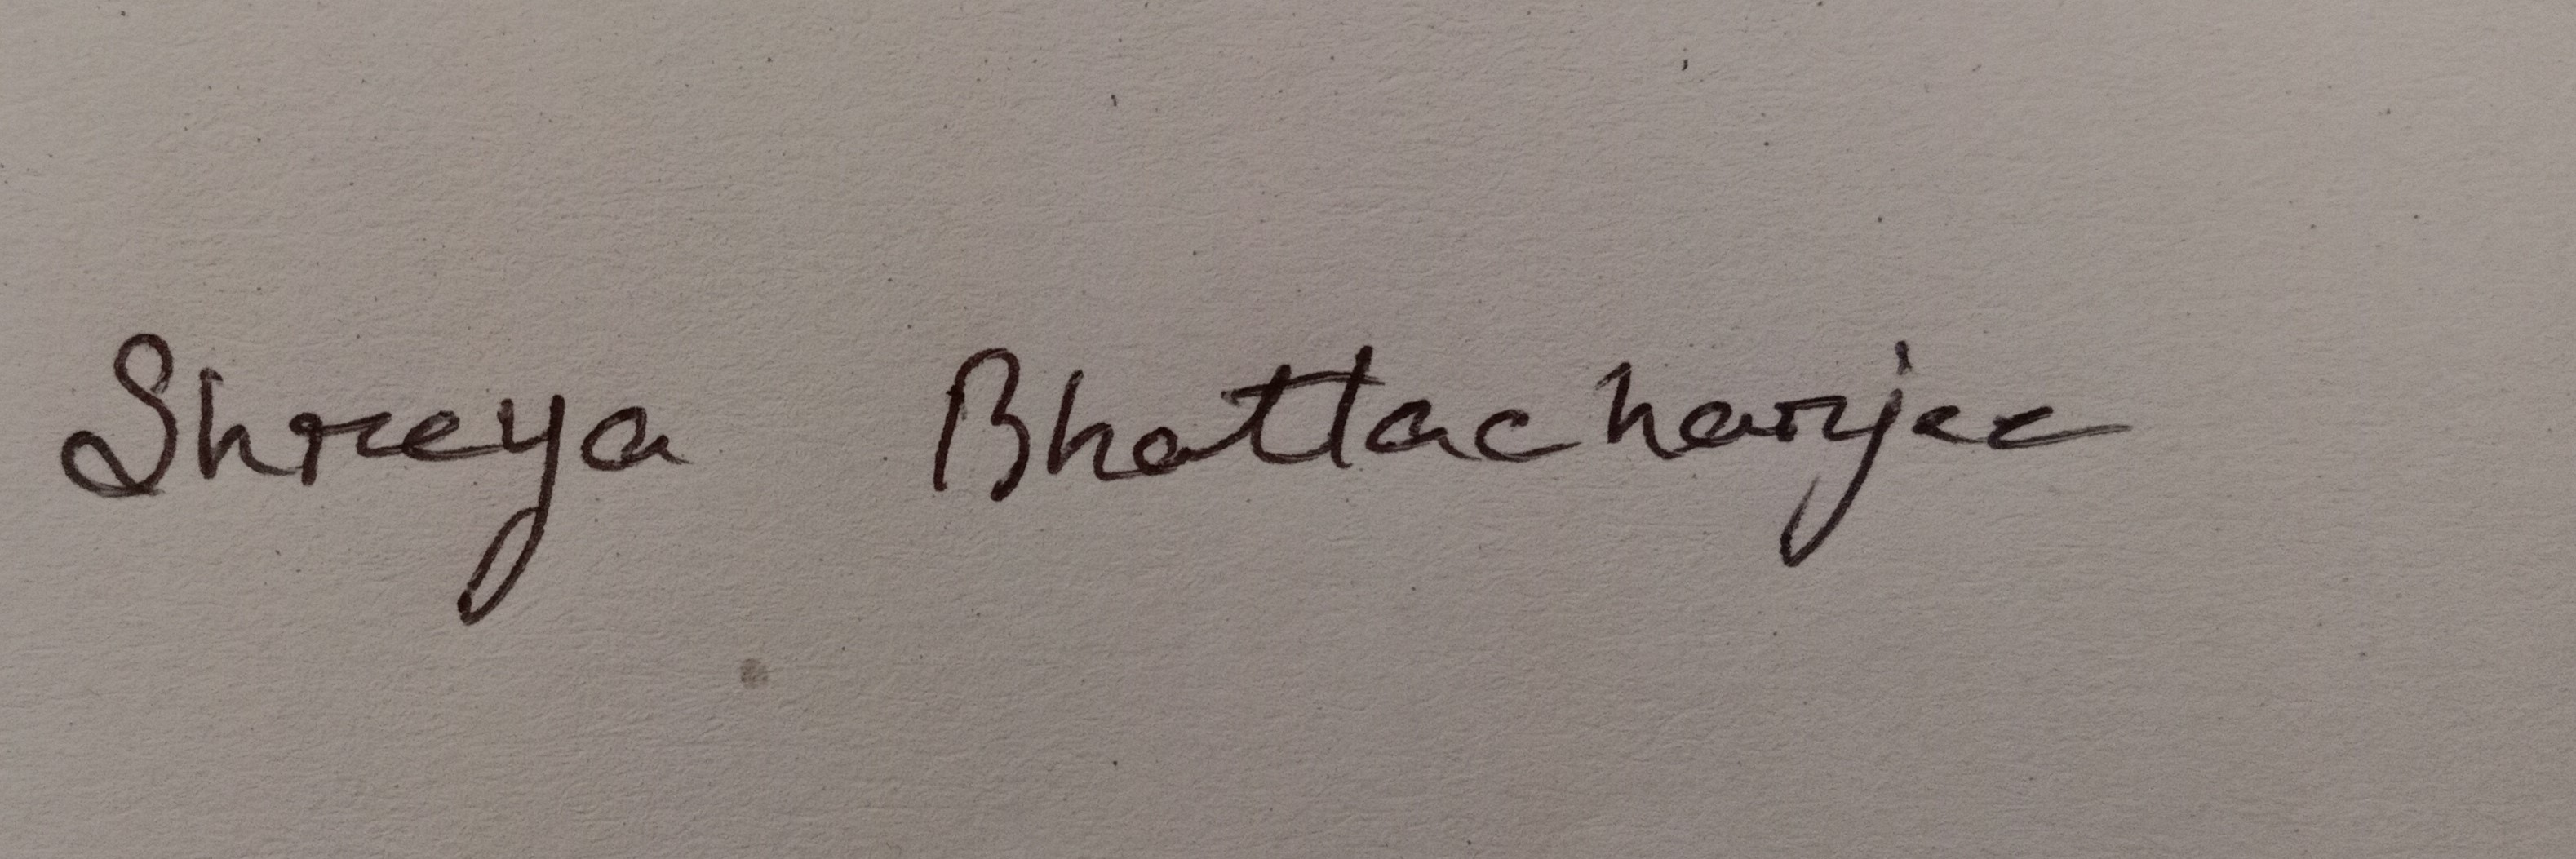 Shreya Bhattacharjee